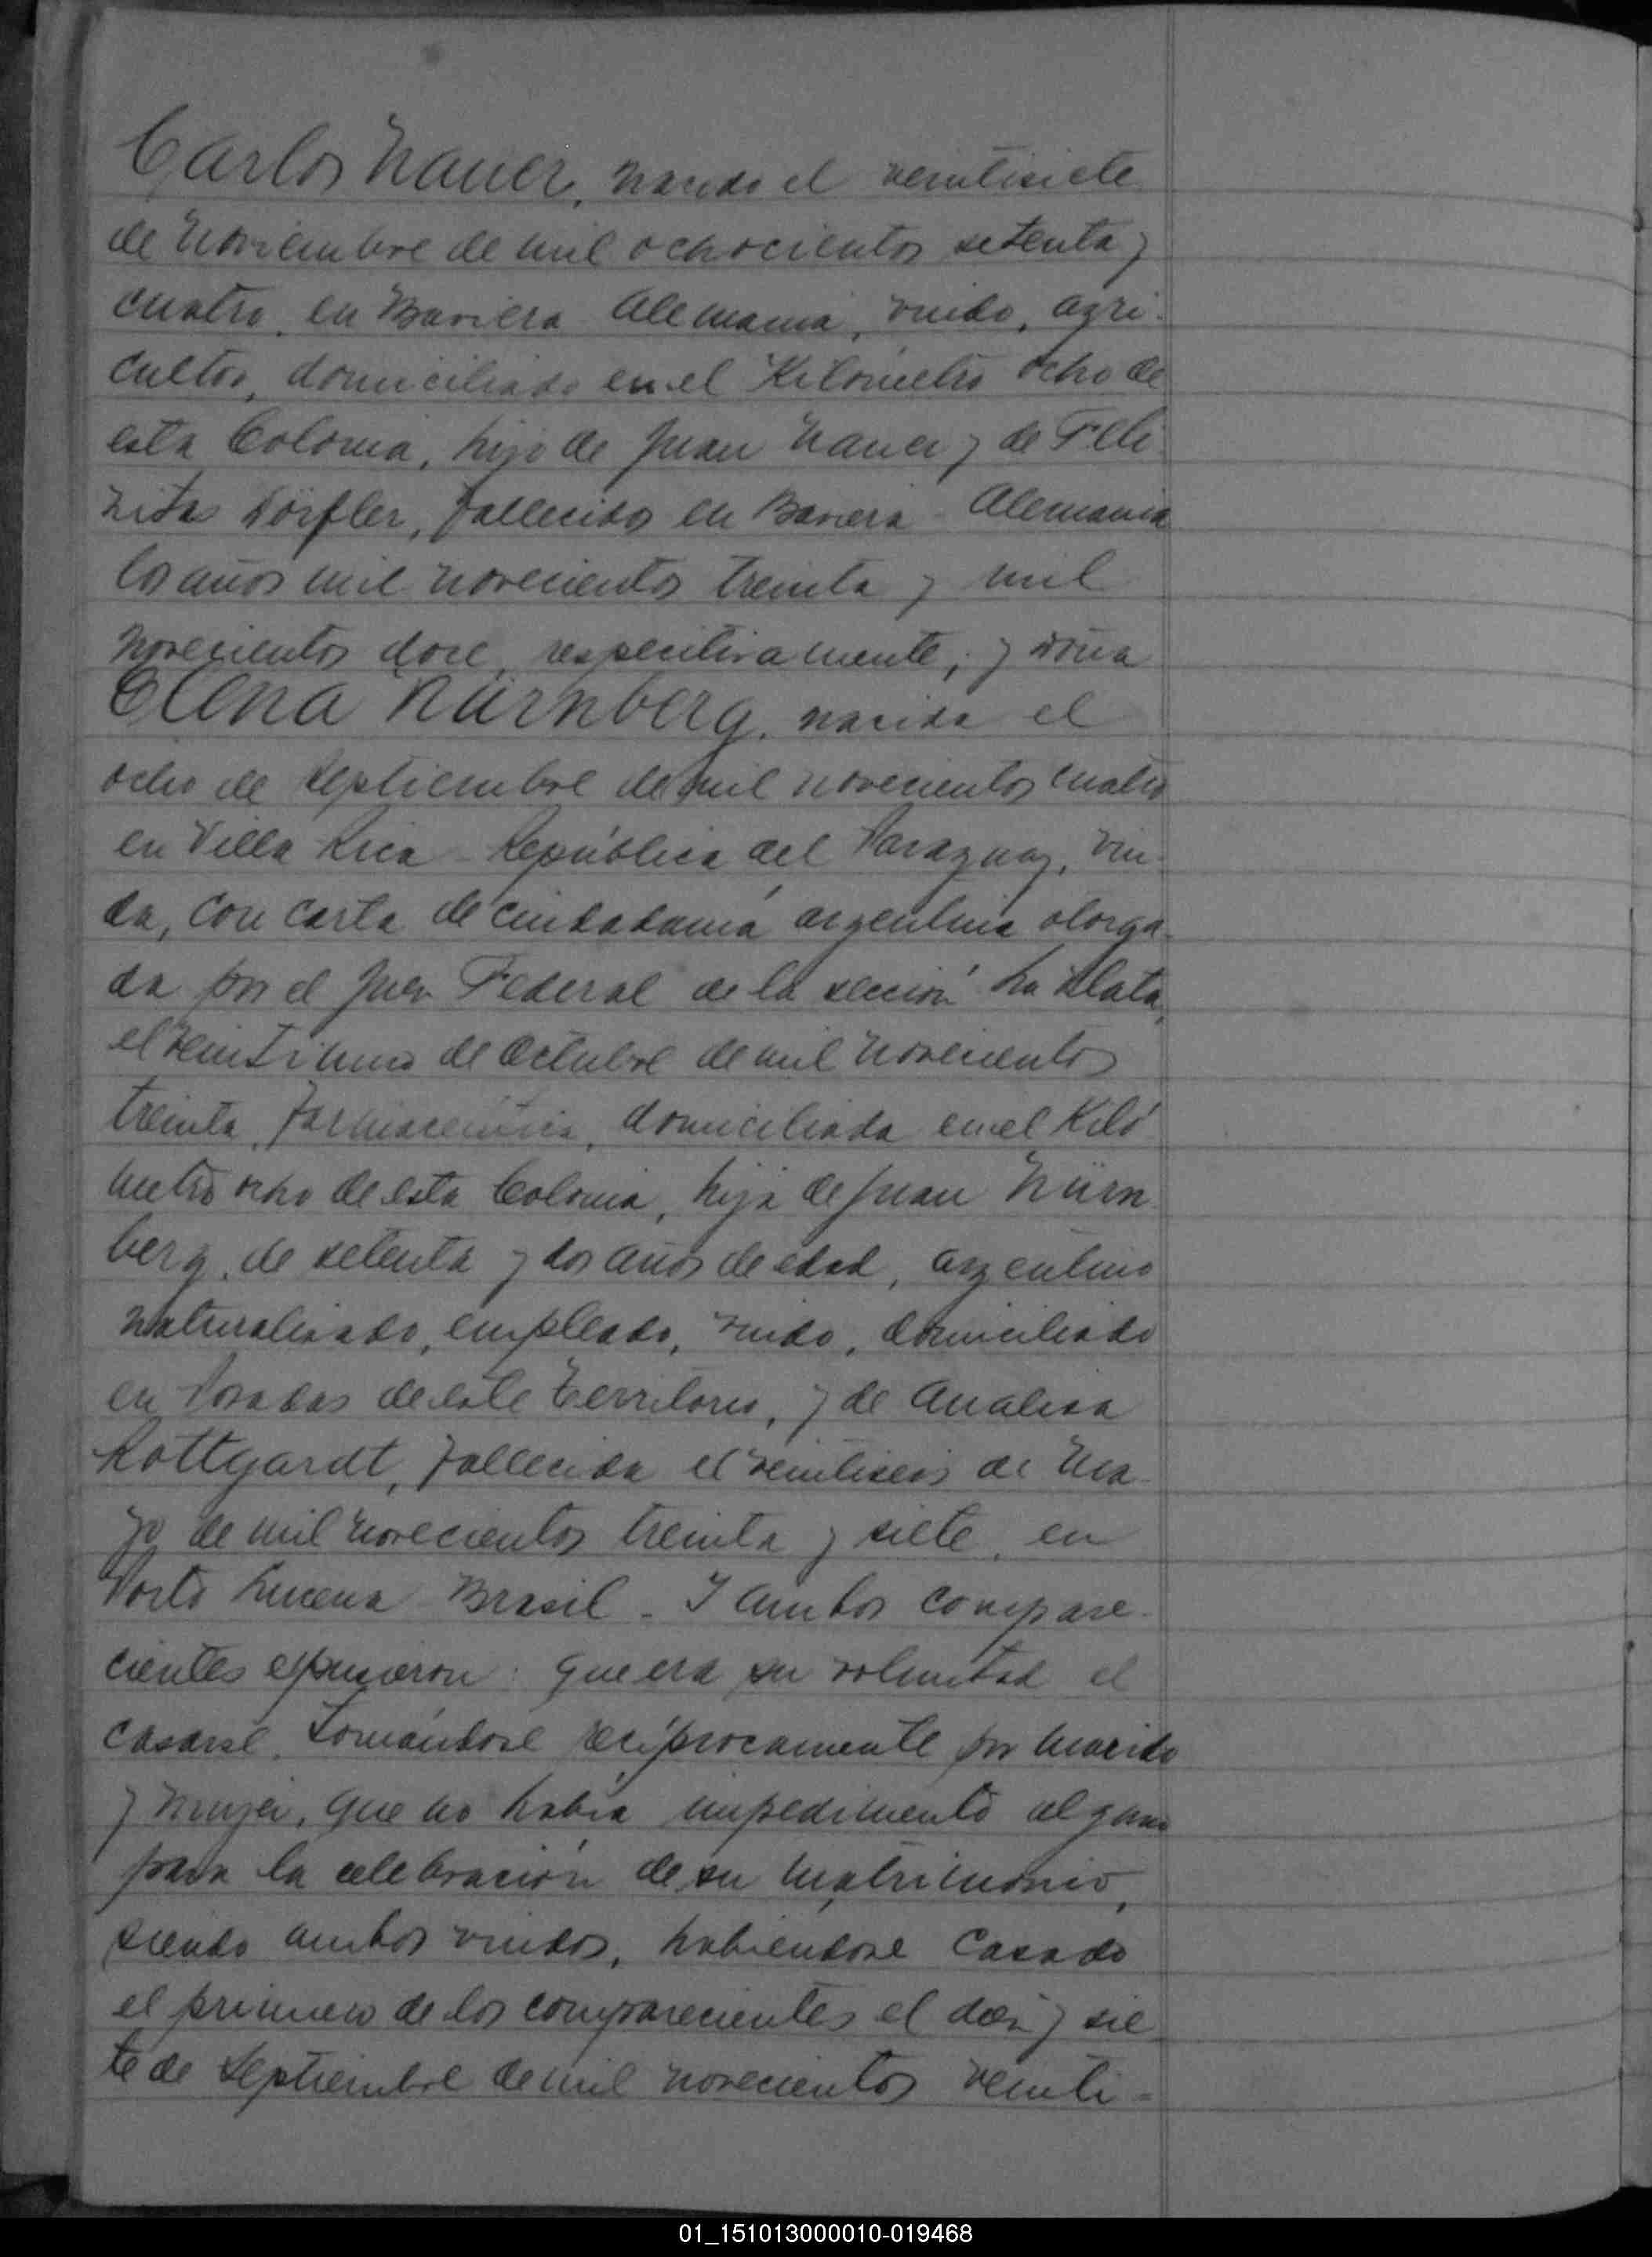 Carlos Nauer, nacido el veintisiete
de Noviembre de mil ochocientos setenta y
cuatro, en Baviera Alemania, viudo, agri-
cultor, domiciliado en el Kilómetro ocho de
esta Colonia, hijo de Juan Nauer y de Feli-
zitas Dörfler, fallecidos en Baviera - Alemania
los años mil novecientos treinta y mil
novecientos doce, respectivamente; y doña
Elena Nürnberg, nacida el
ocho de Septiembre de mil novecientos cuatro
en Villa Rica - República del Paraguay, viu-
da, con carta de ciudadanía argentina otorga-
da por el Juez Federal de la sección La Plata,
el veintiuno de Octubre de mil novecientos
treinta, farmacéutica, domiciliada en el Kiló-
metro ocho de esta Colonia, hija de Juan Nürn-
berg, de setenta y dos años de edad, argentino
naturalizado, empleado, viudo, domiciliado
en Posadas de este Territorio, y de Analisa
Rottgardt, fallecida el veintiseis de Ma-
yo de mil novecientos treinta y siete, en
Porto Lucena - Brasil - Y ambos compare-
cientes expusieron: que era su voluntad el
casarse, tomándose recíprocamente por marido
y mujer, que no había impedimento alguno
para la celebración de su matrimonio,
siendo ambos viudos, habiendose casado
el primero de los comparecientes el diez y sie-
te de Septiembre de mil novecientos veinti-
01_151013000010-019468